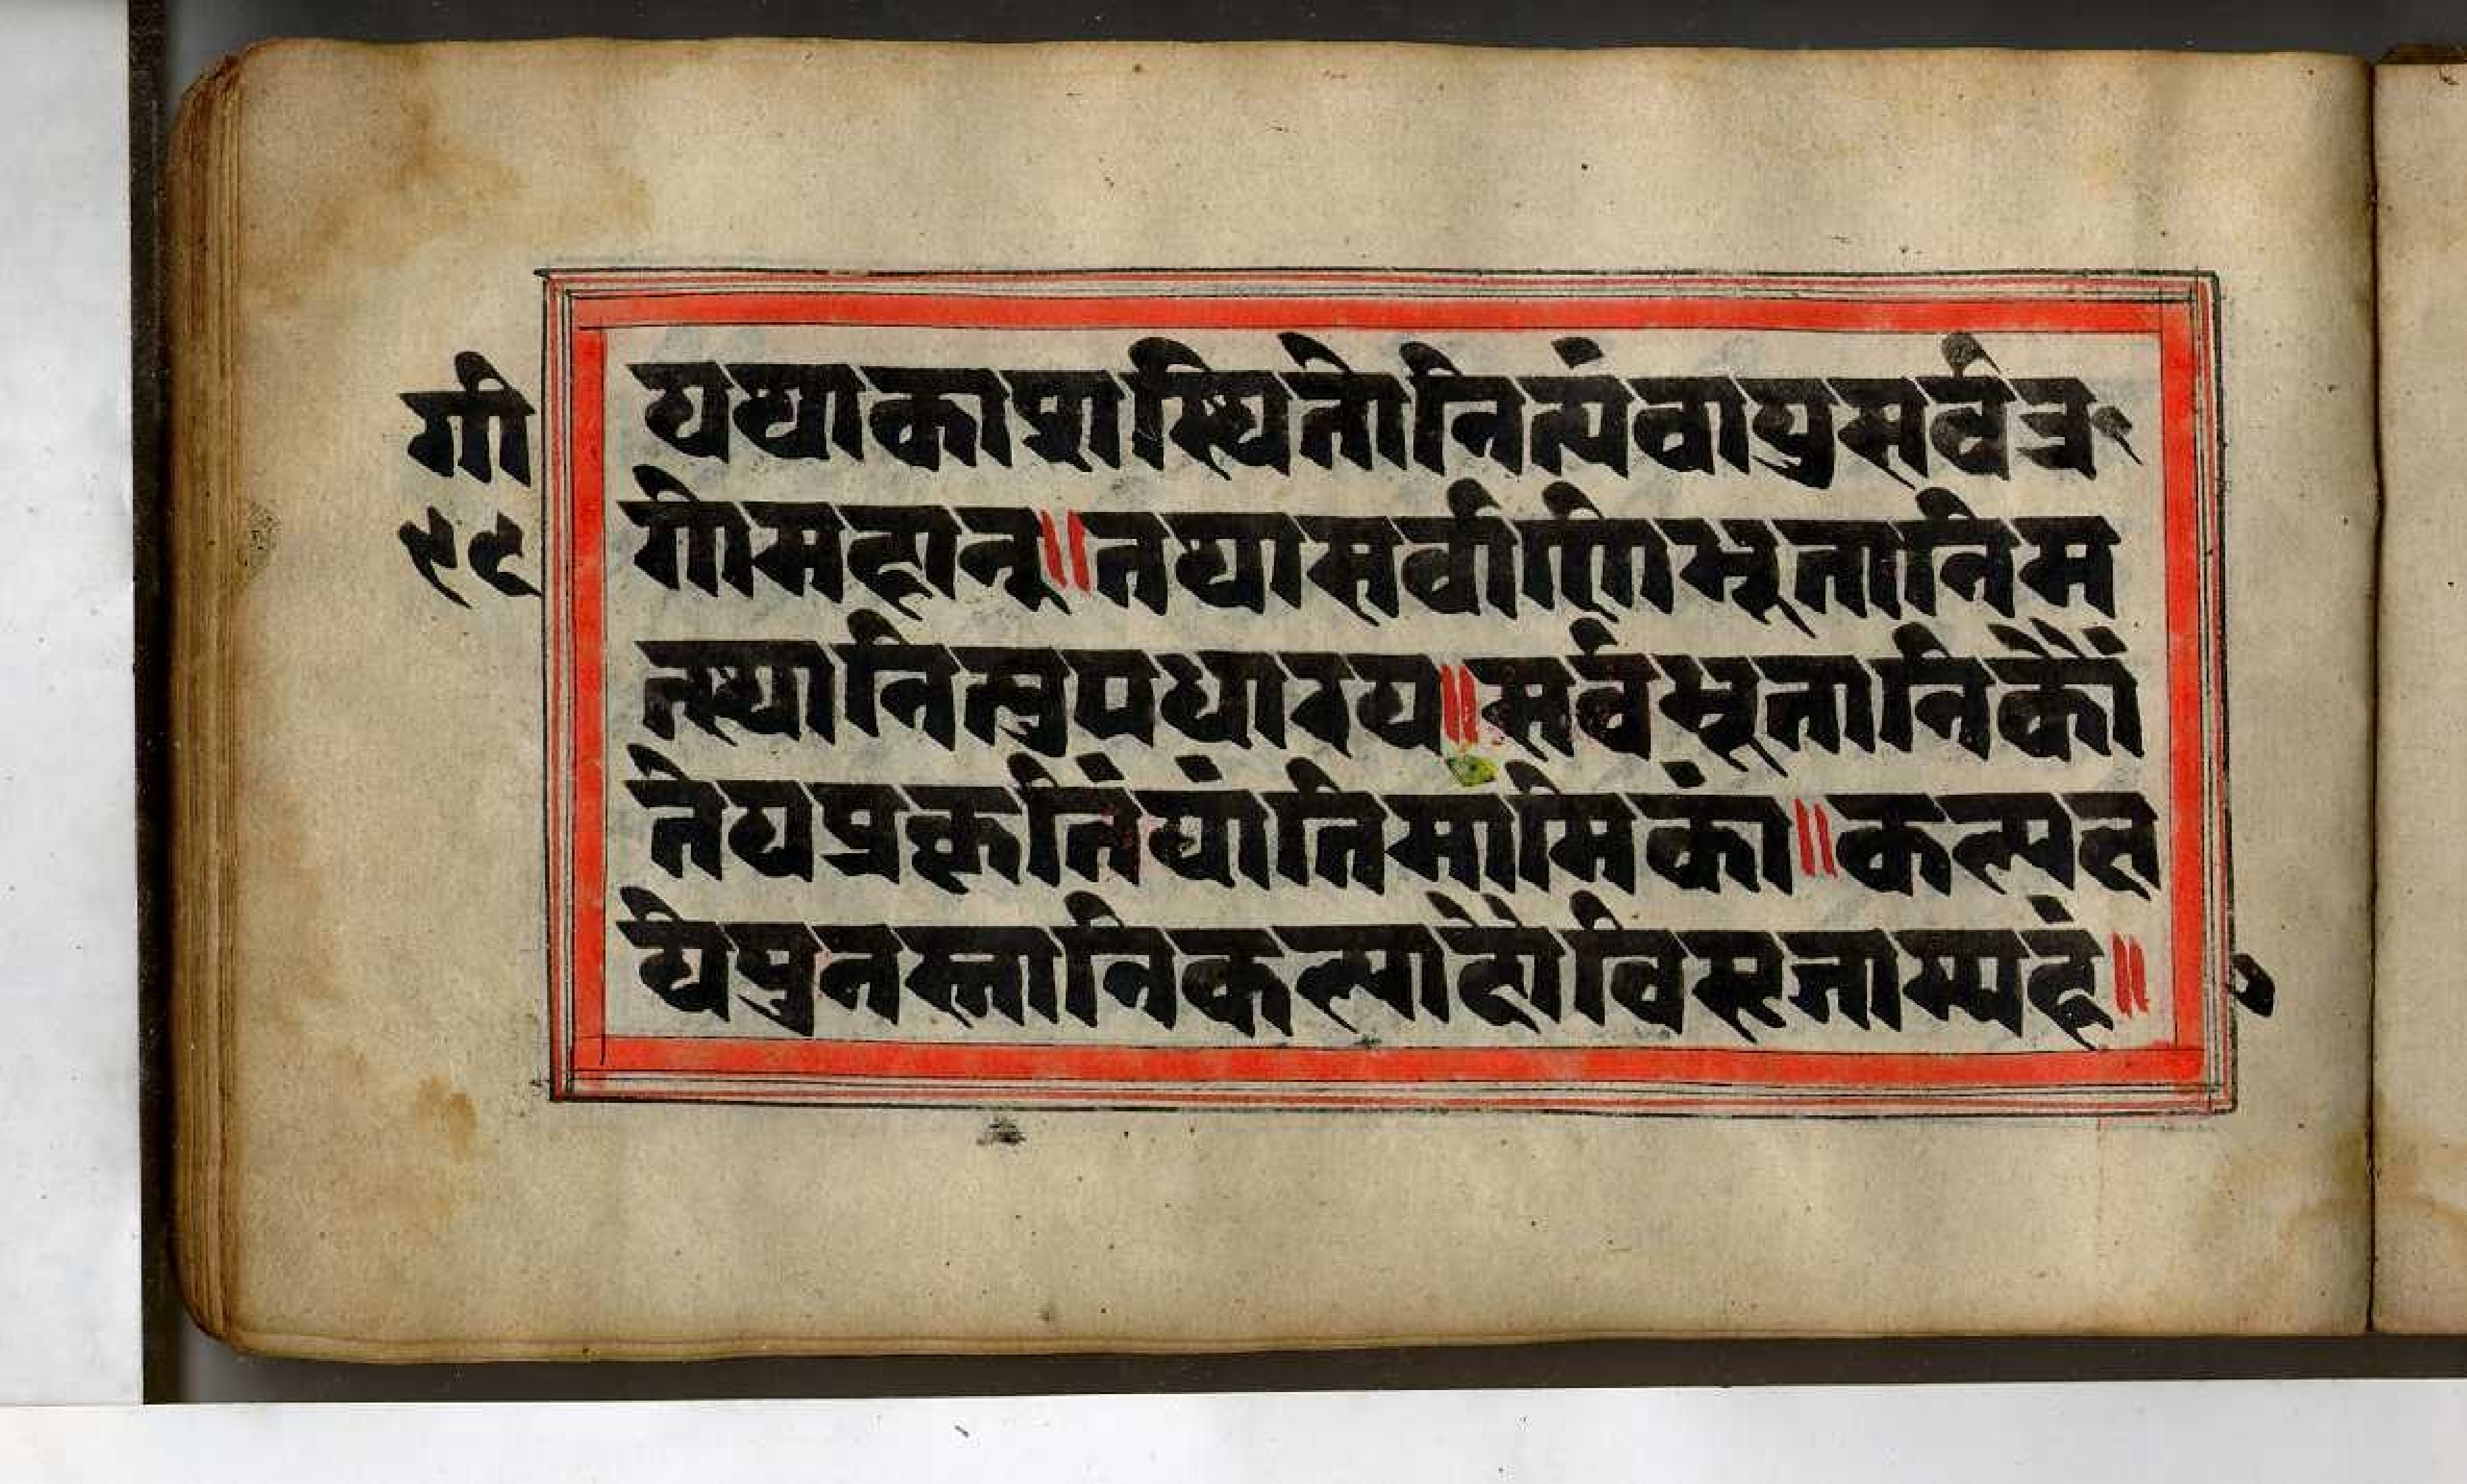 गी
९९
यथाकाशस्थितोनित्यंवायुसर्वत्र
गोमहान्॥तथासर्वाणिभूतानिम
त्स्थानित्युपधारय॥सर्वभूतानिकौं
तेयप्रकृतिंयांतिमामिकां॥कल्पक्ष
येपुनस्तानिकल्पादौविसृजाम्यहं॥